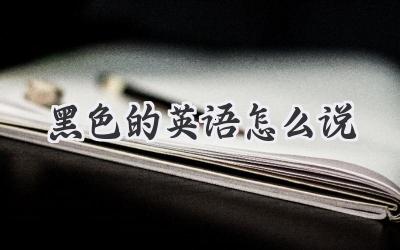 黑色的英语怎么说